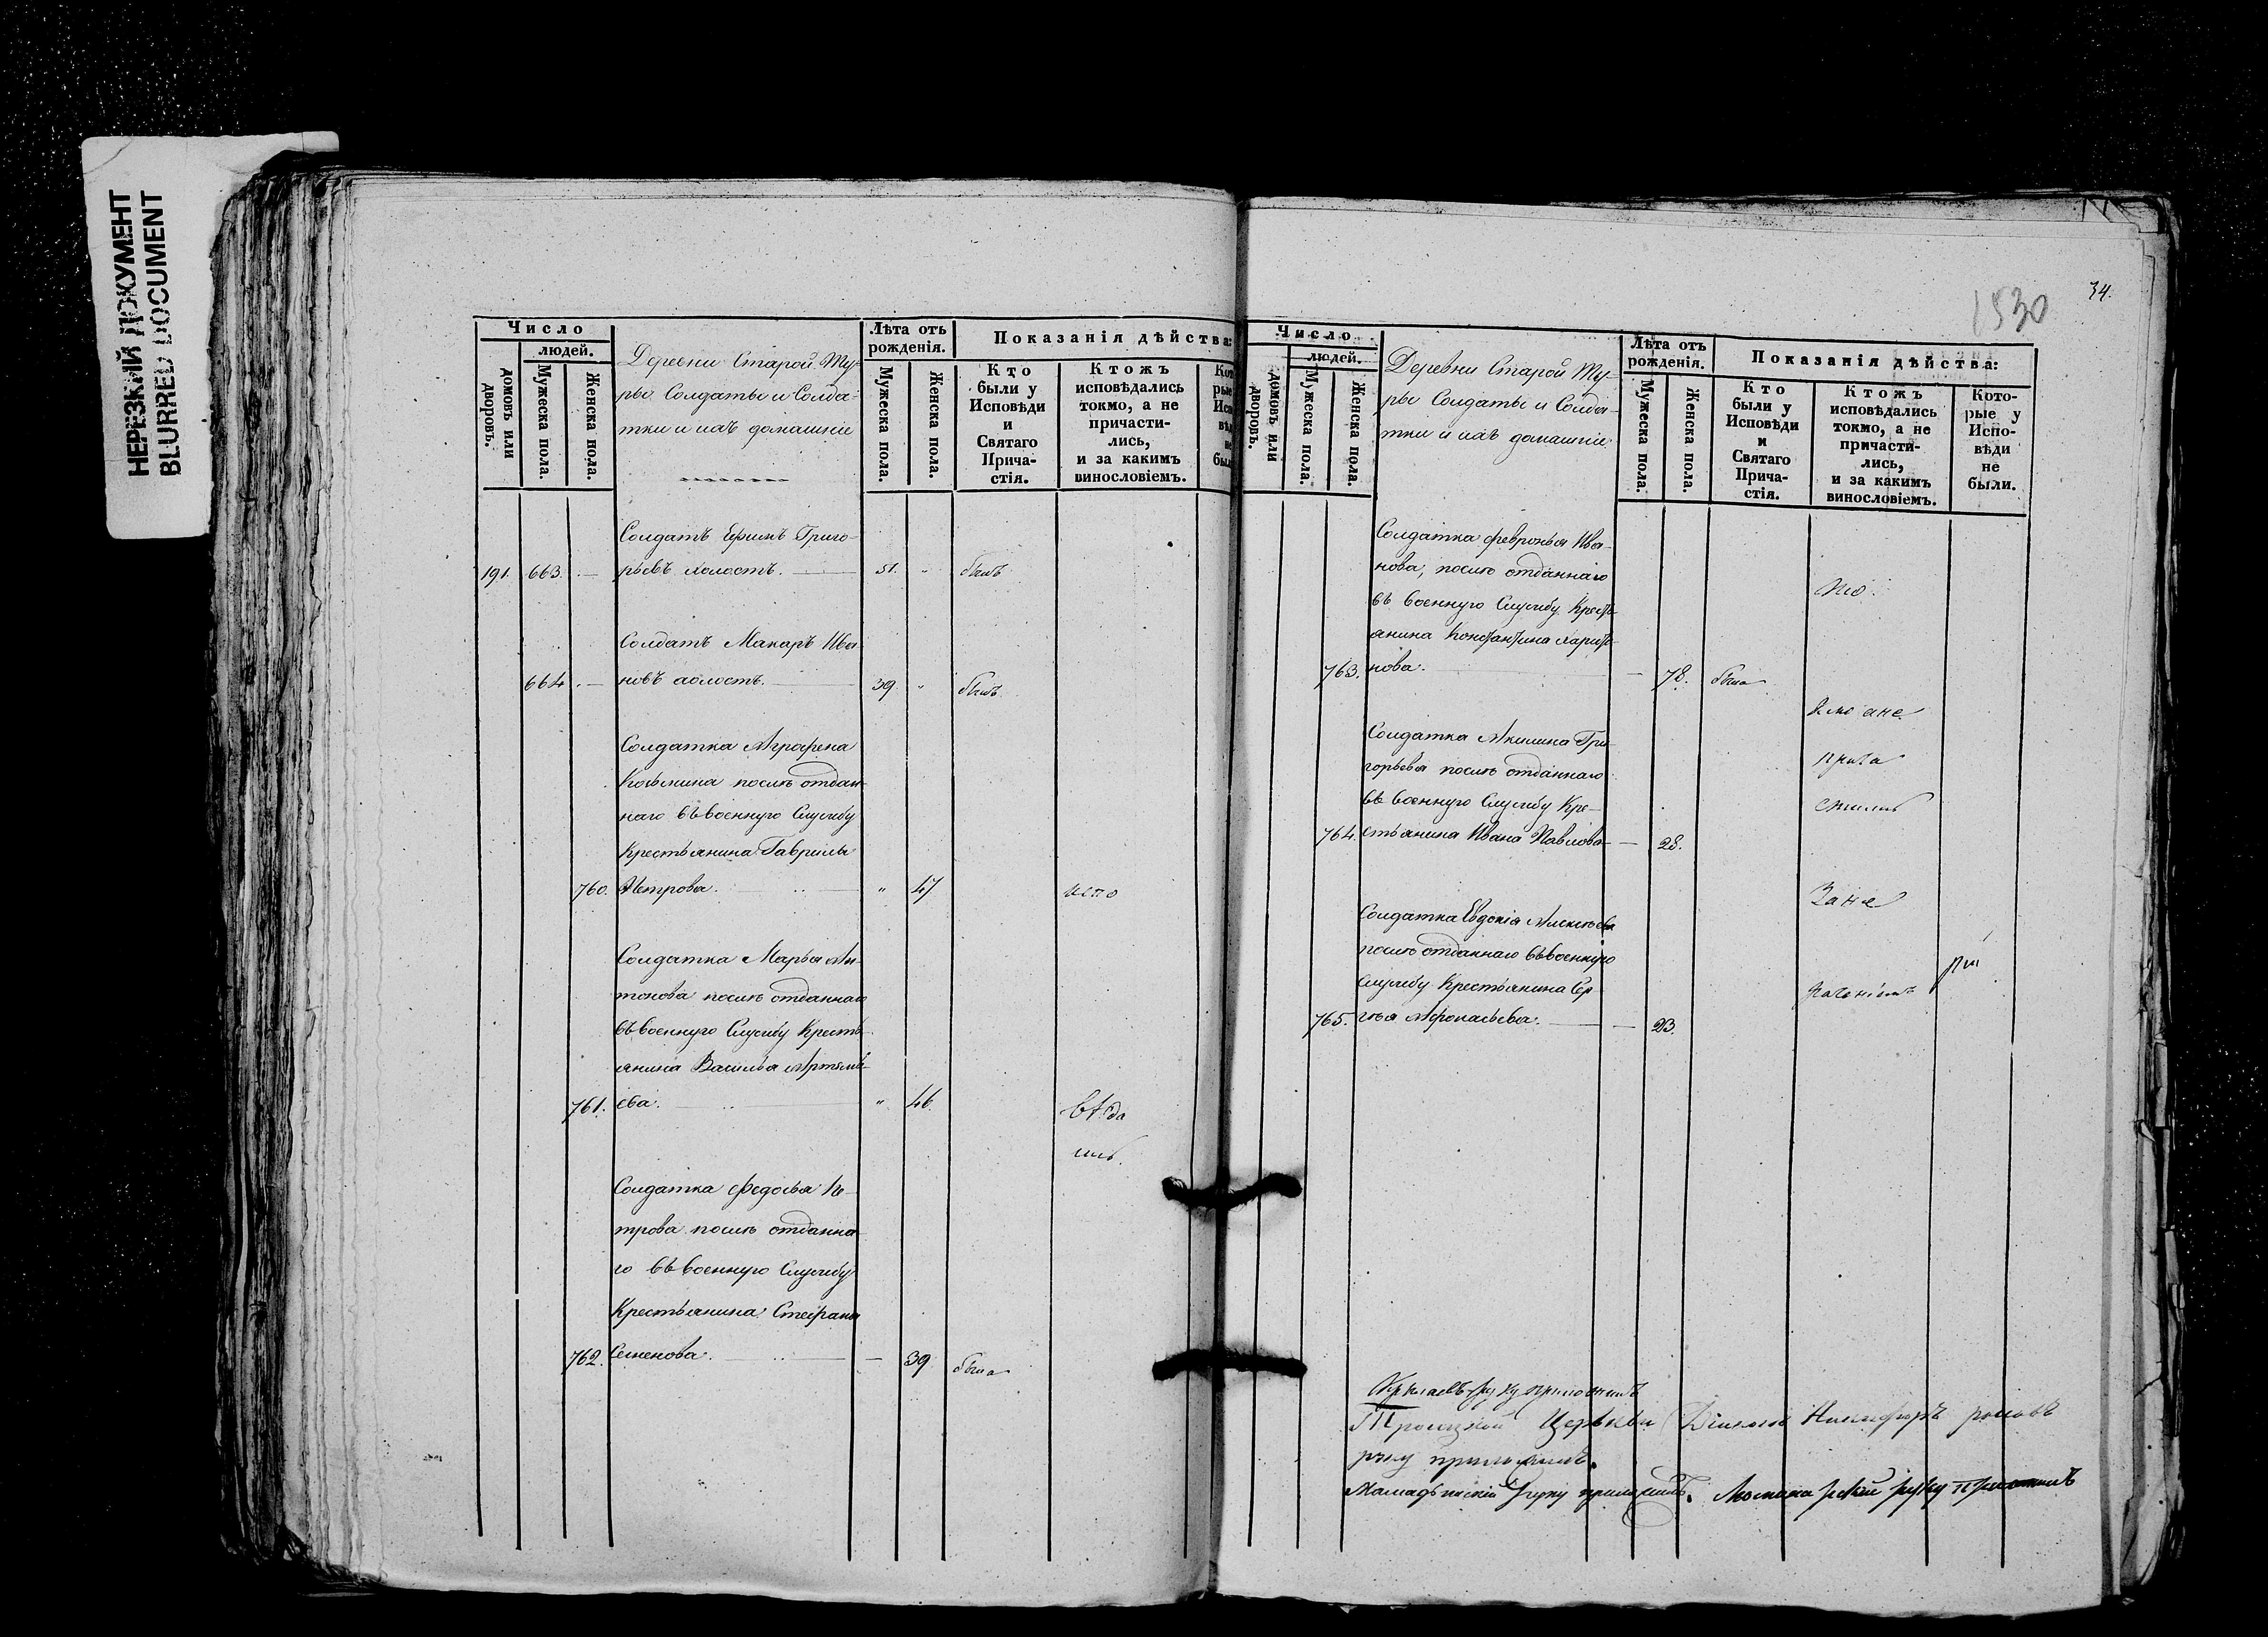 НЕРЕЗКИЙ ДОКУМЕНТ
BLURRED DOCUMENT
Число
людей.
домовъ или дворовъ.
Мужеска пола.
Женска пола.
Деревни Старой Ту-
рьи Солдаты и Солда-
тки и ихъ домашніе
Лѣта отъ
рожденія.
Мужеска пола.
Женска пола.
Показанія дѣйства:
Кто
были у
Исповѣди
и
Святаго
Прича-
стія.
Ктожъ
исповѣдались
токмо, а не
причасти-
лись,
и за какимъ
винословіемъ.
Солдатъ Ефимъ Григо-
191. 663. — рьевъ холостъ. — 51. " былъ
Солдатъ Макаръ Ива
664 — новъ холостъ. — 39. " былъ
Солдатка Аграфена
Козьмина послѣ отдан-
наго въ военную Службу
Крестьянина Гаврилы
760. Петрова. — " 47 испо
Солдатка Марья Ан-
тонова послѣ отданнаго
въ военную Службу Кресть-
янина Василья Артемь-
761. ева. — " 46 вѣда
лись.
Солдатка Федосья Пе-
трова послѣ отданна
го въ военную Службу
Крестьянина Стефана
762. Семенова. — — 39 была
1530
34.
Число
людей.
домовъ или дворовъ.
Мужеска пола.
Женска пола.
Деревни Старой Ту-
рьи Солдаты и Солда-
тки и ихъ домашніе
Лѣта отъ
рожденія.
Мужеска пола.
Женска пола.
Показанія дѣйства:
Кто
были у
Исповѣди
и
Святаго
Прича-
стія.
Ктожъ
исповѣдались
токмо, а не
причасти-
лись,
и за какимъ
винословіемъ.
Кото-
рые у
Испо-
вѣди
не
были.
Солдатка Февронья Ива-
нова, послѣ отданнаго
въ военную Службу Кресть
янина Константина Харито
763. нова. — — 78. была
а не
Солдатка Акилина Гри-
горьева послѣ отданнаго прича
въ военную Службу Кре- стились
764. стьянина Ивана Павлова — — 28.
За не
Солдатка Евдокія Алексѣева
послѣ отданнаго въ военную
Службу Крестьянина Сер-
765. гѣя Афонасьева. — — 23.
руку приложилъ
Троицкой Церкви Никифоръ
руку приложилъ.
руку приложилъ. руку приложилъ